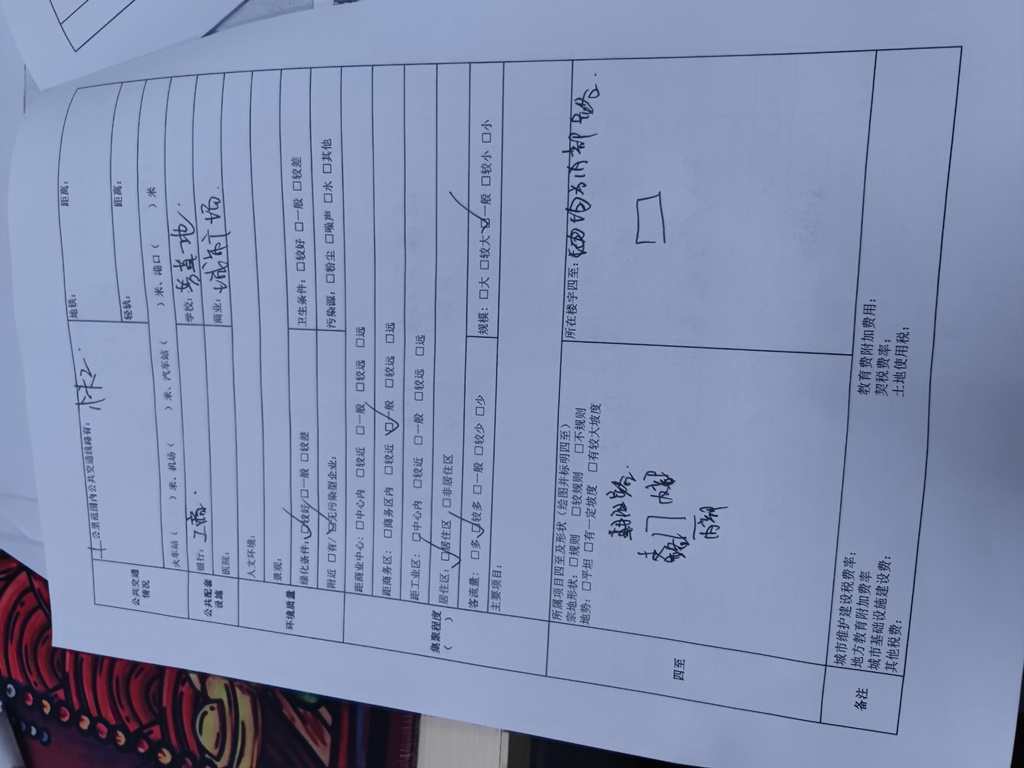 公共交通情况
公里范围内公共交通线路有：
地铁： 距离：
轻轨： 距离：
火车站（ ）米、机场（ ）米、汽车站（ ）米、港口（ ）米
公共配套设施
银行：工商． 学校：
医院： 商业：城市广场
环境质量
人文环境：
景观：
绿化条件：☑较好 □一般 □较差 卫生条件：□较好 □一般 □较差
附近 □有/☑无污染型企业： 污染源：□粉尘 □噪声 □水 □其他
集聚程度（ ）
距商业中心：□中心内 □较近 □一般 □较远 □远
距商务区：□商务区内 □较近 ☑一般 □较远 □远
距工业区：□中心内 □较近 □一般 □较远 □远
居住区：☑居住区 □非居住区
客流量：□多 ☑较多 □一般 □较少 □少 规模：□大 □较大 ☑一般 □较小 □小
主要项目：
四至
所属项目四至及形状（绘图并标明四至）
宗地形状：□规则 □较规则 □不规则
地势：□平坦 □有一定坡度 □有较大坡度
所在楼宇四至：均为内部路．
内部
备注
城市维护建设税费率： 教育费附加费用：
地方教育附加费率 契税费率：
城市基础设施建设费： 土地使用税：
其他税费：